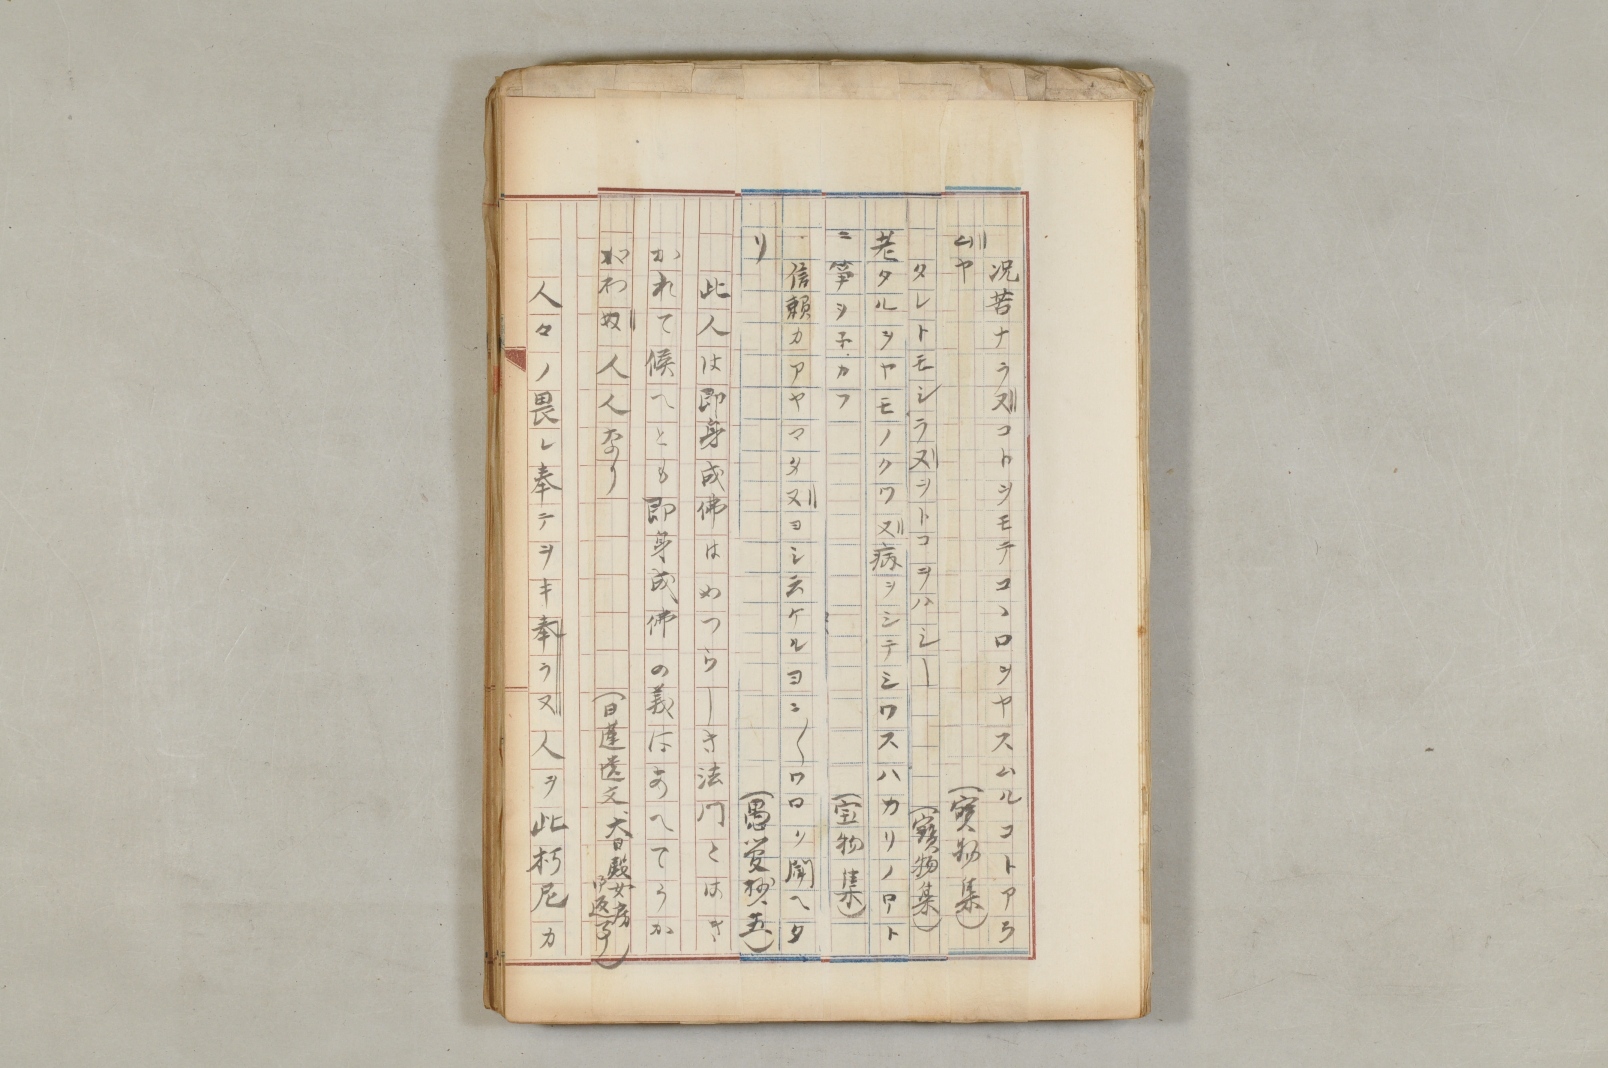 况苦ナラヌコトヲモテコヽロヲヤスムルコトアラ
ムヤ
(寶物集)
タレトモシラヌヲトコヲハシ
(寶物集)
老タルヲヤモノクワヌ病ヲシテシワスハカリノコト
ニ筝ヲネカフ
(宝物集)
信賴カアヤマタヌヨシ云ケルヨニ〳〵ワロク聞ヘタ
リ
(愚管抄、五)
此人は即身成佛はめつらしき法門とはき
かれて候へとも即身成佛の義はあへてうか
かわぬ人人なり
(日蓮遺文、大日殿女房御返事)
人々ノ畏レ奉テヲキ奉ラヌ人ヲ此朽尼カ